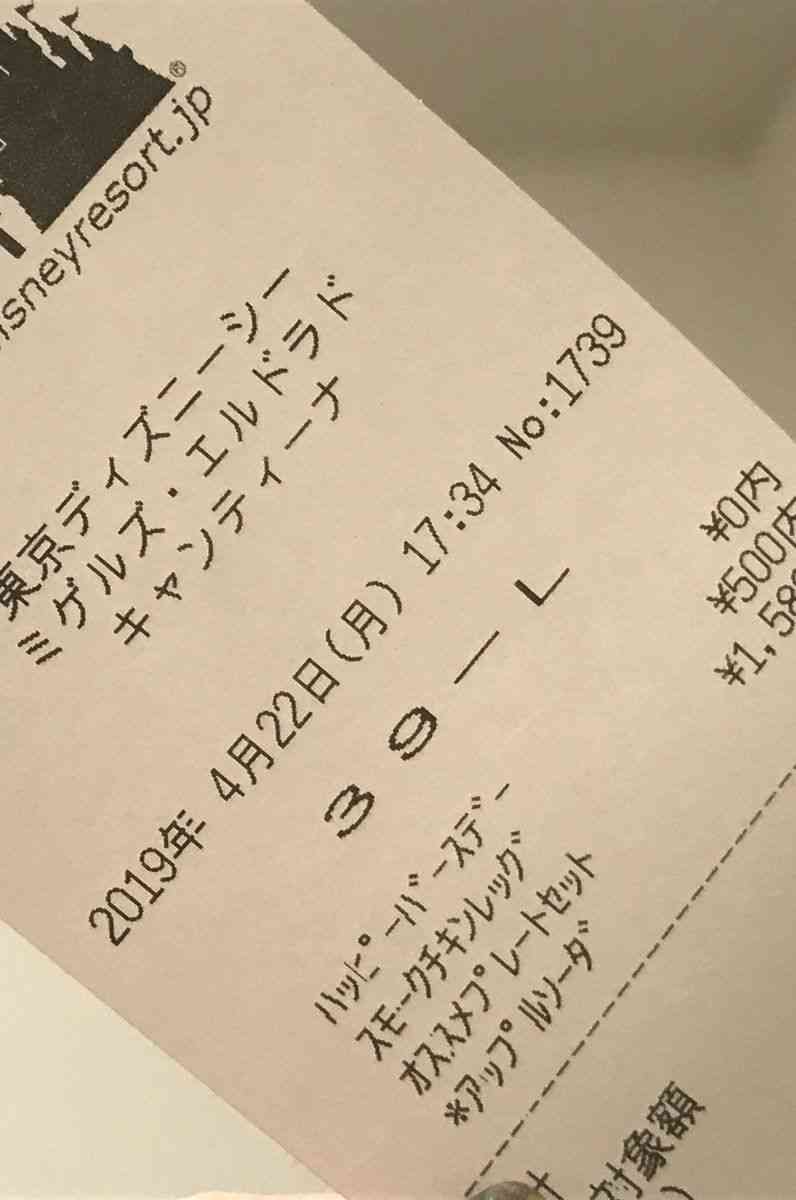 ®
sneyresort.jp
東京ディズニーシー
ミゲルズ・エルドラド
キャンティーナ
2019年 4月22日(月) 17:34 No:1739
39－L
ﾊｯﾋﾟｰﾊﾞｰｽﾃﾞｰ ¥0内
ｽﾓｰｸﾁｷﾝﾚｯｸﾞ ¥500内
ｵｽｽﾒﾌﾟﾚｰﾄｾｯﾄ ¥1,58
*ｱｯﾌﾟﾙｿｰﾀﾞ
対象額